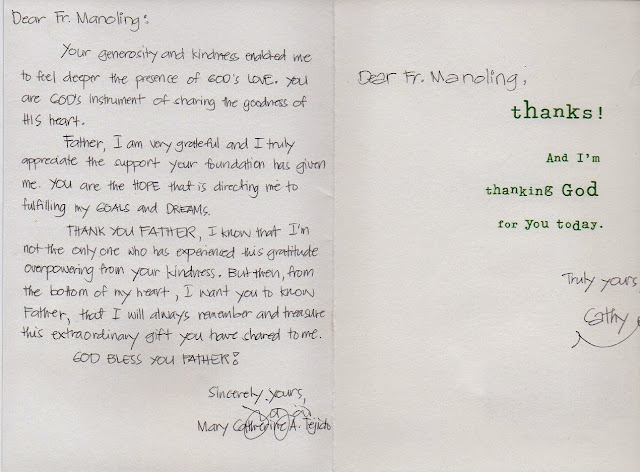 Dear Fr. Manoling:
Your generosity and kindness enabled me
to feel deeper the presence of GOD's LOVE. YOU
are GOD's instrument of sharing the goodness of
HIS heart.
Father, I am very grateful and I truly
appreciate the support your foundation has given
me. YOU are the HOPE that is directing me to
fulfilling my GOALS and DREAMS.
THANK YOU FATHER, I know that I'm
not the only one who has experienced this gratitude
overpowering from your kindness. But then, from
the bottom of my heart, I want you to know
Father, that I will always remember and treasure
this extraordinary gift you have shared to me.
GOD BLESS YOU FATHER!
Sincerely yours,
Mary Catherine A. Tejido
Dear Fr. Manoling,
thanks!
And I'm
thanking God
for you today.
Truly yours
Cathy